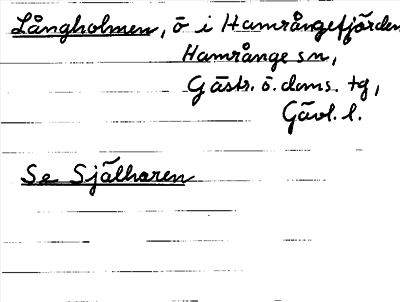 Långholmen, ö i Hamrångefjärden
Hamrånge sn,
Gästr. ö. doms. tg,
Gävl. l.
Se Själharen